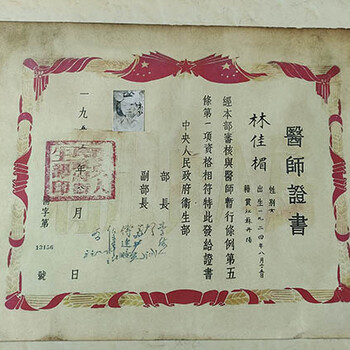 醫師證書
林佳楣
性別女
出生一九二四年八月
籍貫江蘇丹陽
經本部審核與醫師暫行條例第五
條第一項資格相符特此發給證書
中央人民政府衛生部
部長
副部長
一九 年 月 日
字第 13156 號